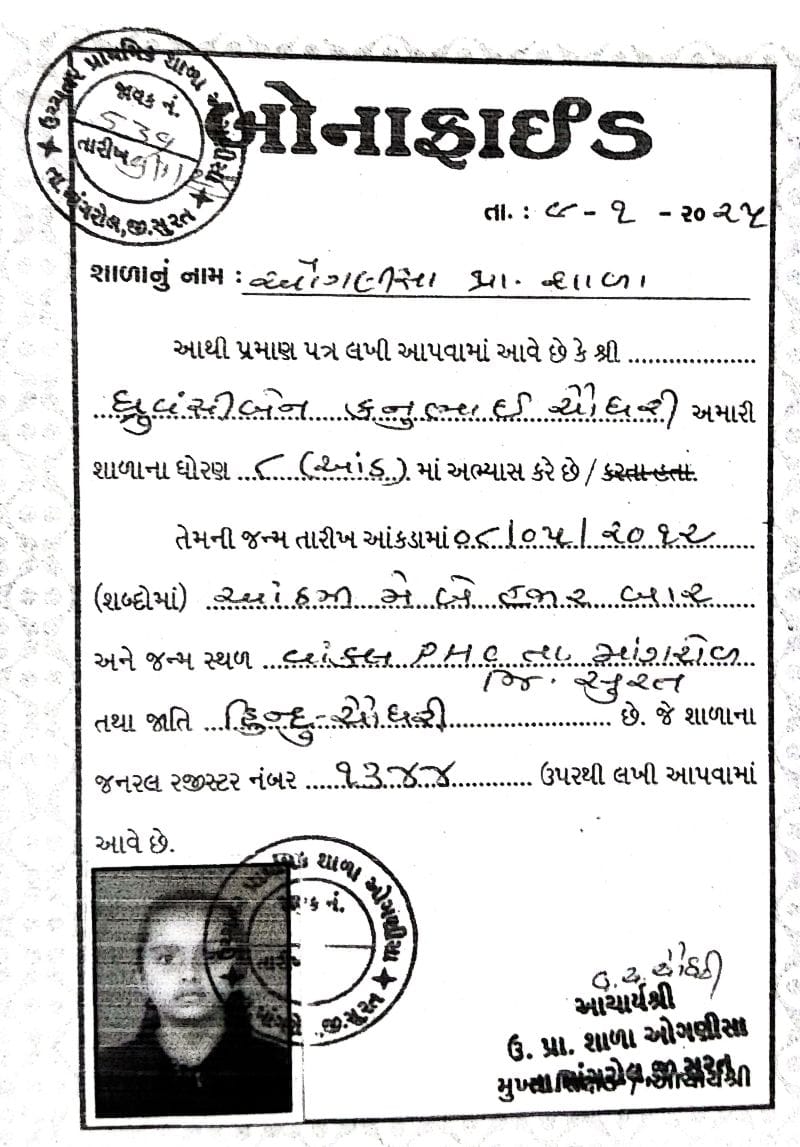 ઉચ્ચતર પ્રાથમિક શાળા
જાવક નં.
539
તારીખ
તા. માંગરોલ, જી. સુરત
બોનાફાઈડ
તા. : ૯ - ૧ - ૨૦૨૫
શાળાનું નામ : ઓગણીસા પ્રા. શાળા
આથી પ્રમાણ પત્ર લખી આપવામાં આવે છે કે શ્રી ....................
ધ્રુવંસીબેન કનુભાઈ ચૌધરી અમારી
શાળાના ધોરણ ૮ (આંઠ) માં અભ્યાસ કરે છે / કરતા હતા.
તેમની જન્મ તારીખ આંકડામાં ૦૮/૦૫/૨૦૧૨
(શબ્દોમાં) આંઠમી મે બે હજાર બાર
અને જન્મ સ્થળ વાંકલ PHC તા. માંગરોળ
જિ. સુરત
તથા જાતિ હિન્દુ-ચૌધરી છે. જે શાળાના
જનરલ રજીસ્ટર નંબર ૧૩૪૪ ઉપરથી લખી આપવામાં
આવે છે.
પ્રાથમિક શાળા ઓગણીસા
જાવક નં.
જી. સુરત
આચાર્યશ્રી
ઉ. પ્રા. શાળા ઓગણીસા
માંગરોલ જી. સુરત
મુખ્ય શિક્ષક / આચાર્યશ્રી